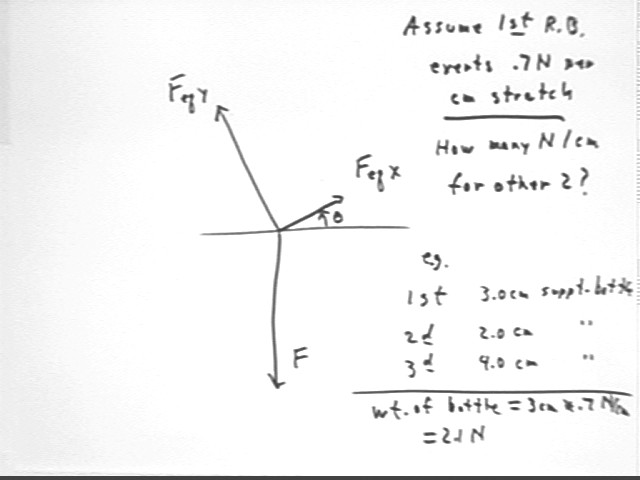 Assume 1st R.B.
exerts .7N per
cm stretch
How many N/cm
for other 2?
FeqY
Feq X
θ
F
eg.
1st 3.0cm suppt. bottle
2d 2.0 cm "
3d 4.0 cm "
wt. of bottle = 3cm * .7 N/cm
= 2.1 N